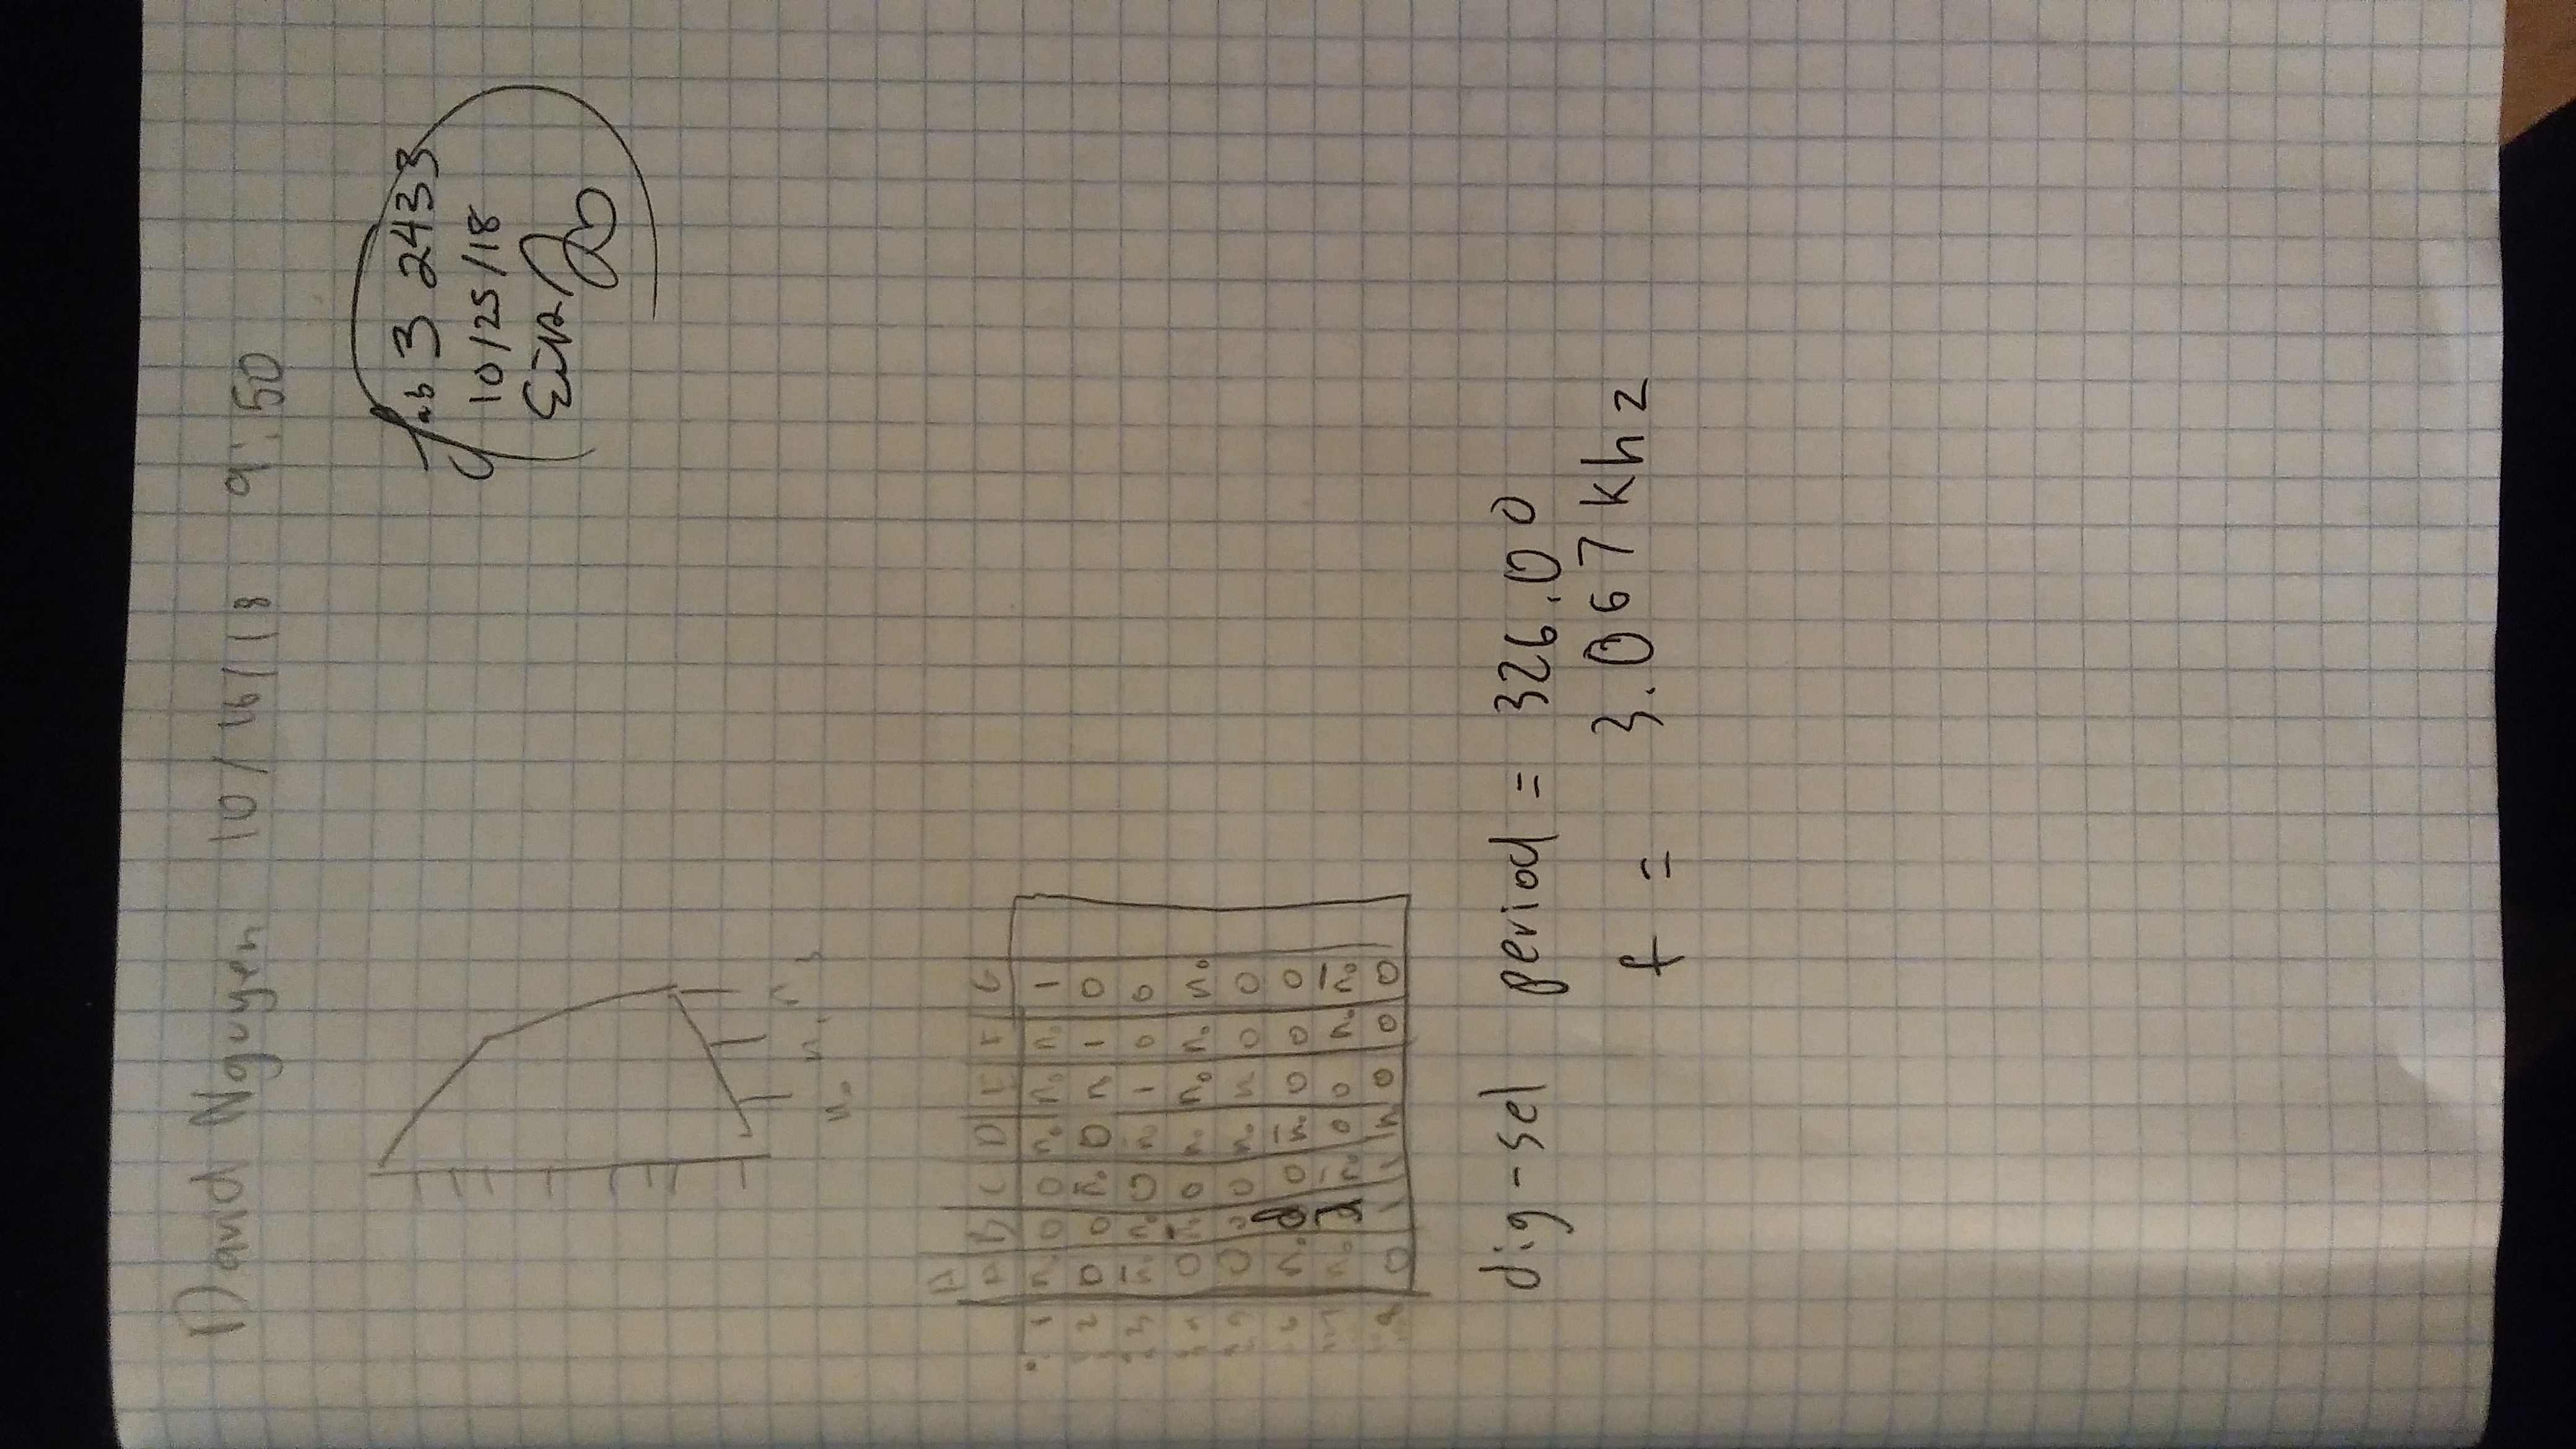 David Nguyen 10/16/18 9:50
Lab 3 2433
10/25/18
n₀ n₁ n
A
A B C D E F G
1 n₀ 0 0 n₀ n₀ n₀ 1
2 0 0 n̄₀ 0 n 1 0
3 n̄₀ n₀ 0 n̄₀ 1 0 0
0 n̄₀ 0 n₀ n₀ n₀ n₀
0 0 0 n₀ n 0 0
n₀ d 0 n̄₀ 0 0 0
n₀ n̄₀ 0 0 n₀ n̄₀
0 1 1 n 0 0 0
dig-sel period = 326.00
f = 3.067 khz